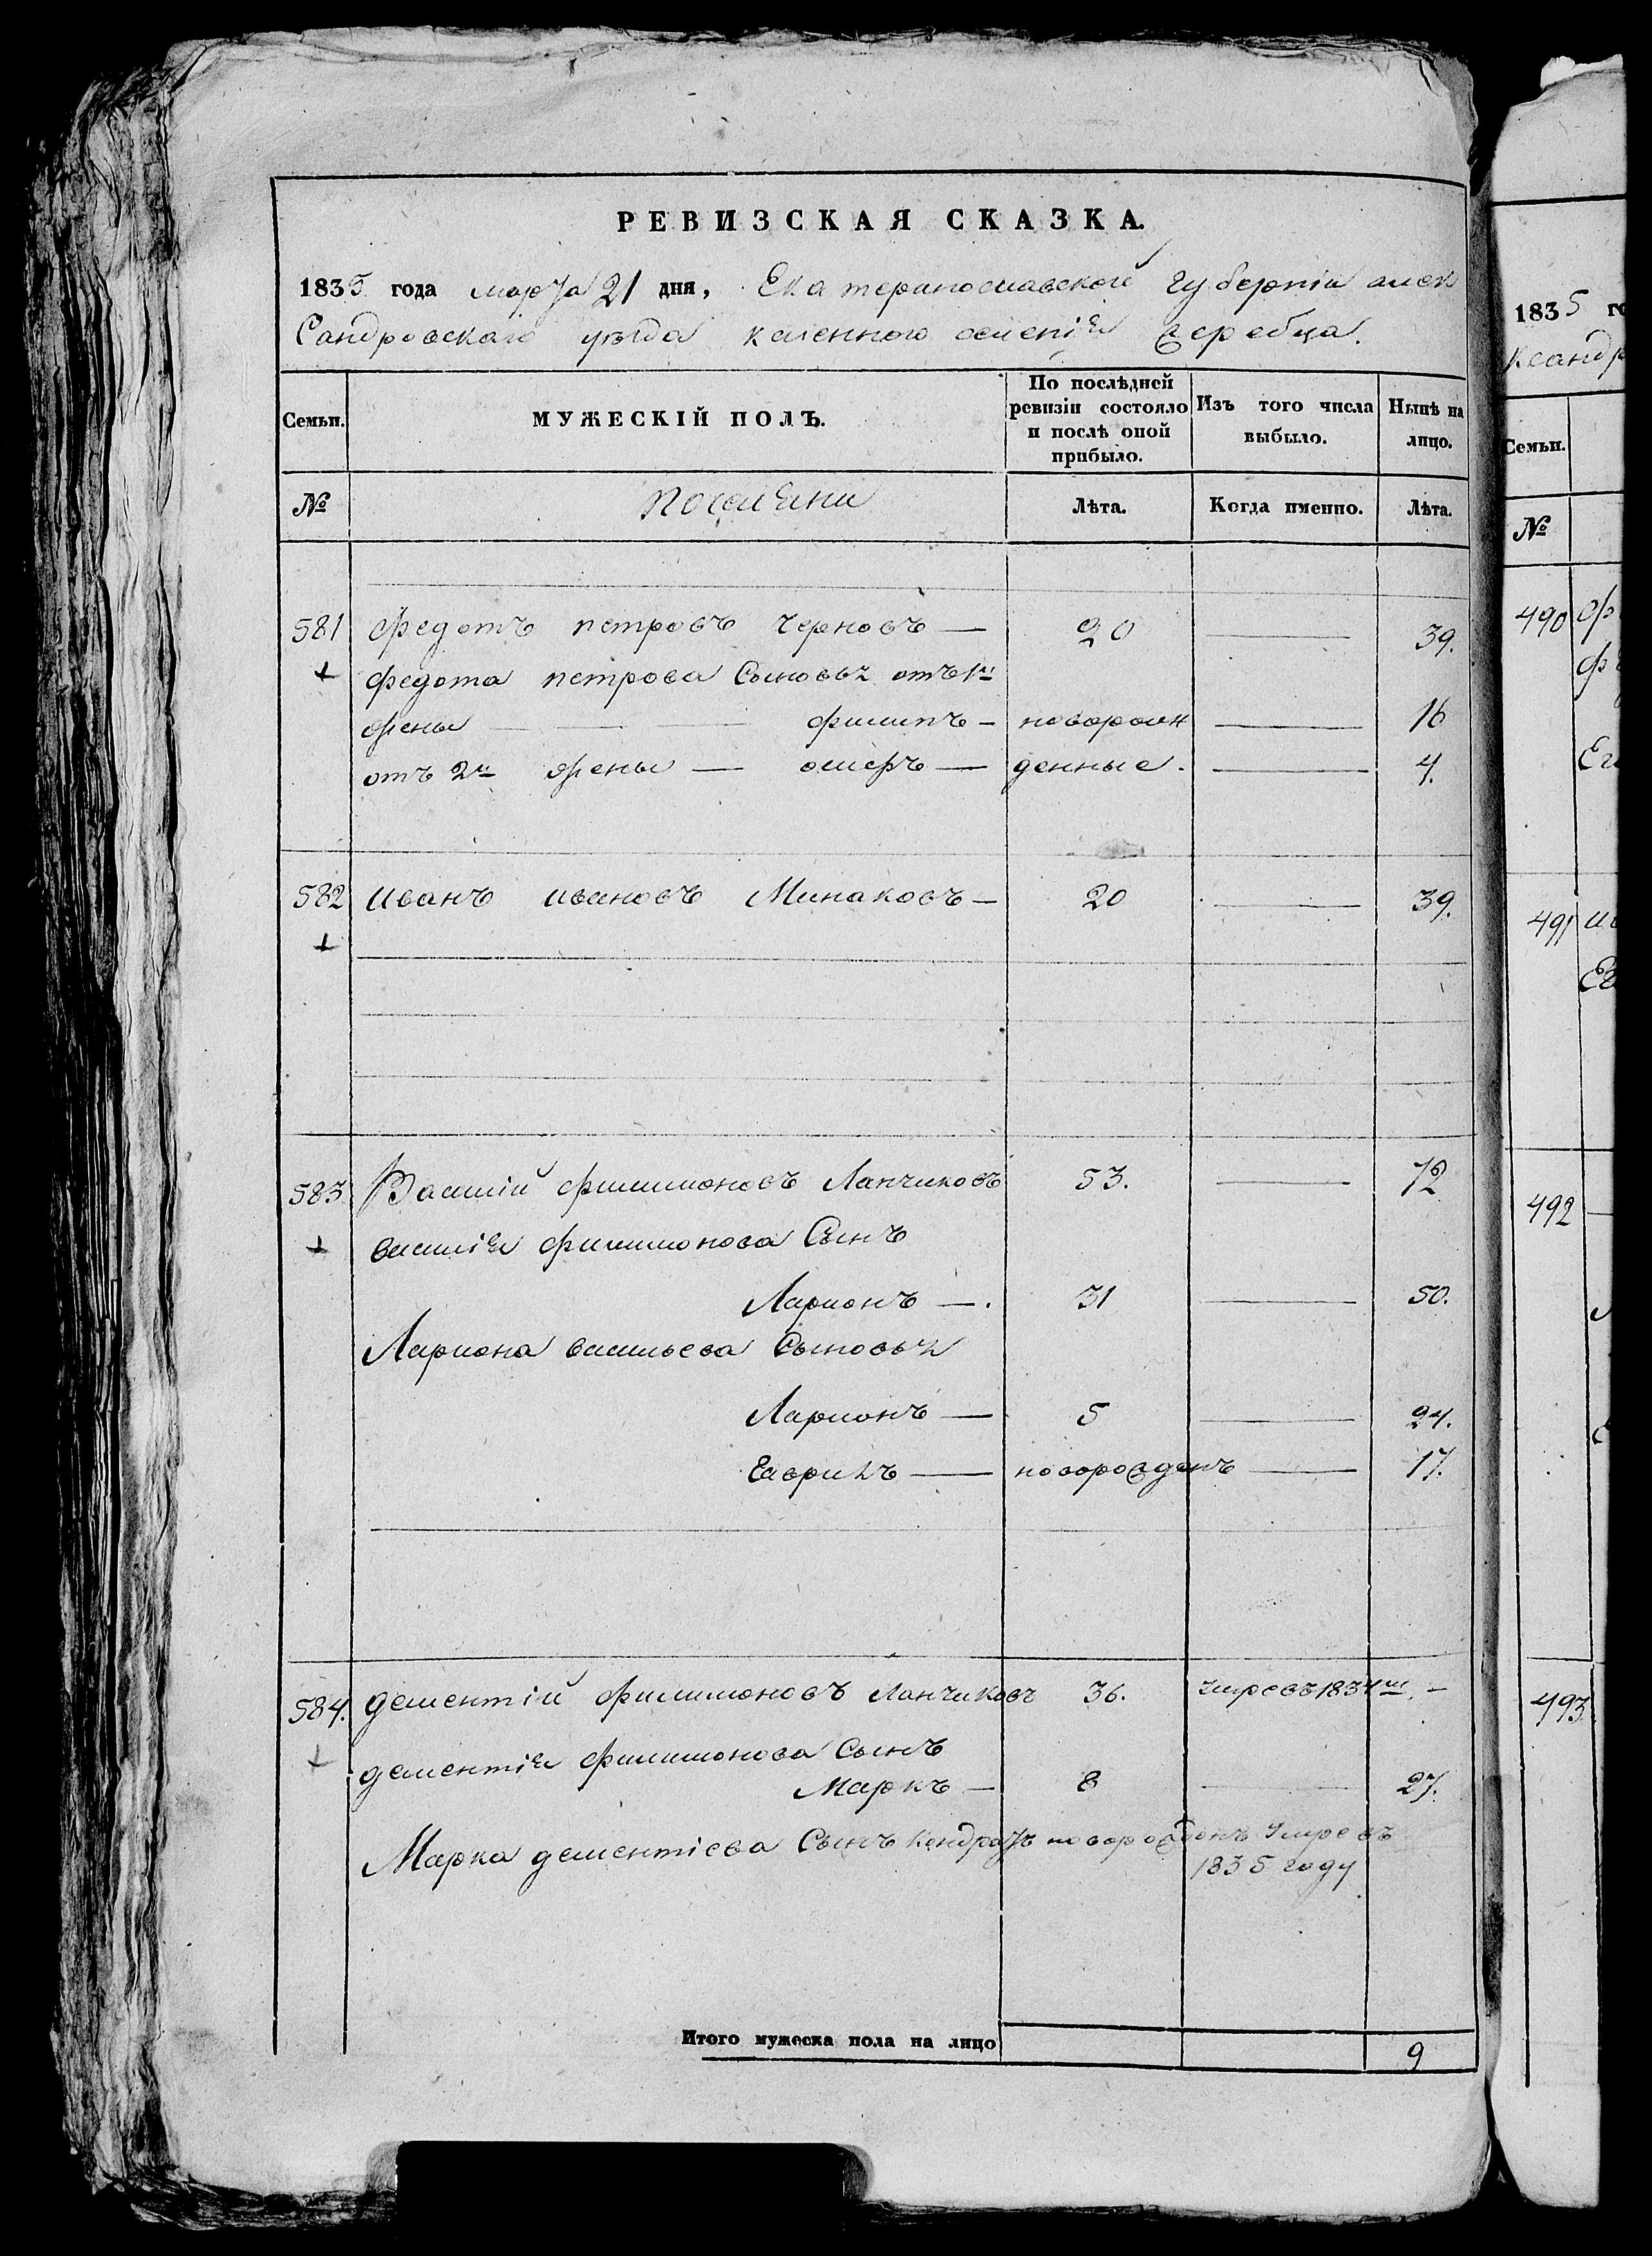 РЕВИЗСКАЯ СКАЗКА.
1835 года марта 21 дня, Екатеринославской губерніи алек
Сандровскаго уѣзда казенного селенія Жеребца.
Семьи. МУЖЕСКІЙ ПОЛЪ. По послѣдней ревизіи состояло и послѣ оной прибыло. Изъ того числа выбыло. Нынѣ на лицо.
№ поселяни Лѣта. Когда именно. Лѣта.
581 Федотъ петровъ Черновъ — 20 — 39.
федота петрова Сыновья отъ 1й
жены — филипъ — новорож — 16
отъ 2й жены — — денные. — 4.
582 Иванъ ивановъ Минаковъ — 20 — 39.
583 Василій филимоновъ Ланчиковъ 53. — 72
василія филимонова Сынъ
Ларионъ —. 31 — 50.
Лариона васильева Сыновья
Ларионъ — 5 — 24.
Гаврила — новорожденъ — 17.
584. дементій филимоновъ Ланчиковъ 36. умре въ 1834м. —
дементія филимонова Сынъ
Маркъ — 8 — 27.
Марка дементіева Сынъ Кондратъ новорожденъ Умре въ
1835 году
Итого мужеска пола на лицо 9
1835 го
ксандр
Семьи.
№
490 ф
491 и
Ев
492
493